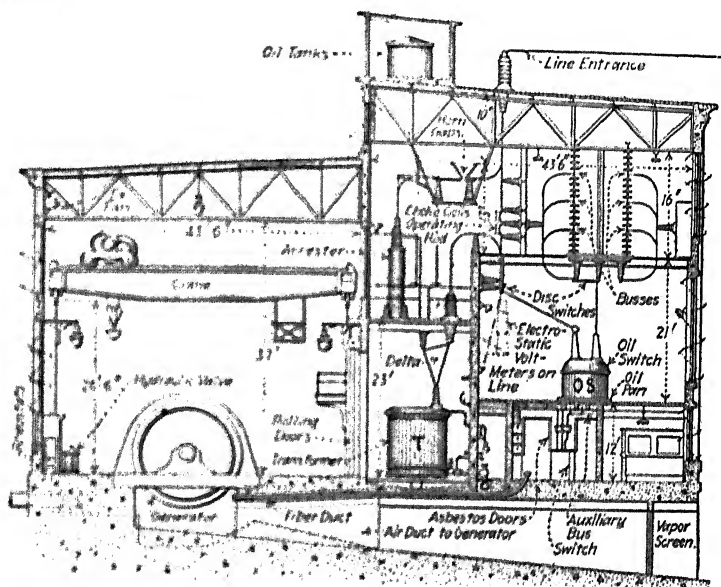 Oil Tanks
Line Entrance
Horn
Gaps
10'
43'6"
16'
Fan
43' 6"
Choke Coils
Operating
Rod
Arrester
Crane
Disc
Switches
Busses
Electro-
Static
Volt-
Meters on
Line
21'
Oil
Switch
Oil
Pan
OS
Delta
37'
23'
26' 6"
Hydraulic Valve
Rolling
Doors
Transformer
T
12'
Generator
Fiber Duct
Asbestos Doors
Air Duct to Generator
Auxiliary
Bus
Switch
Vapor
Screen